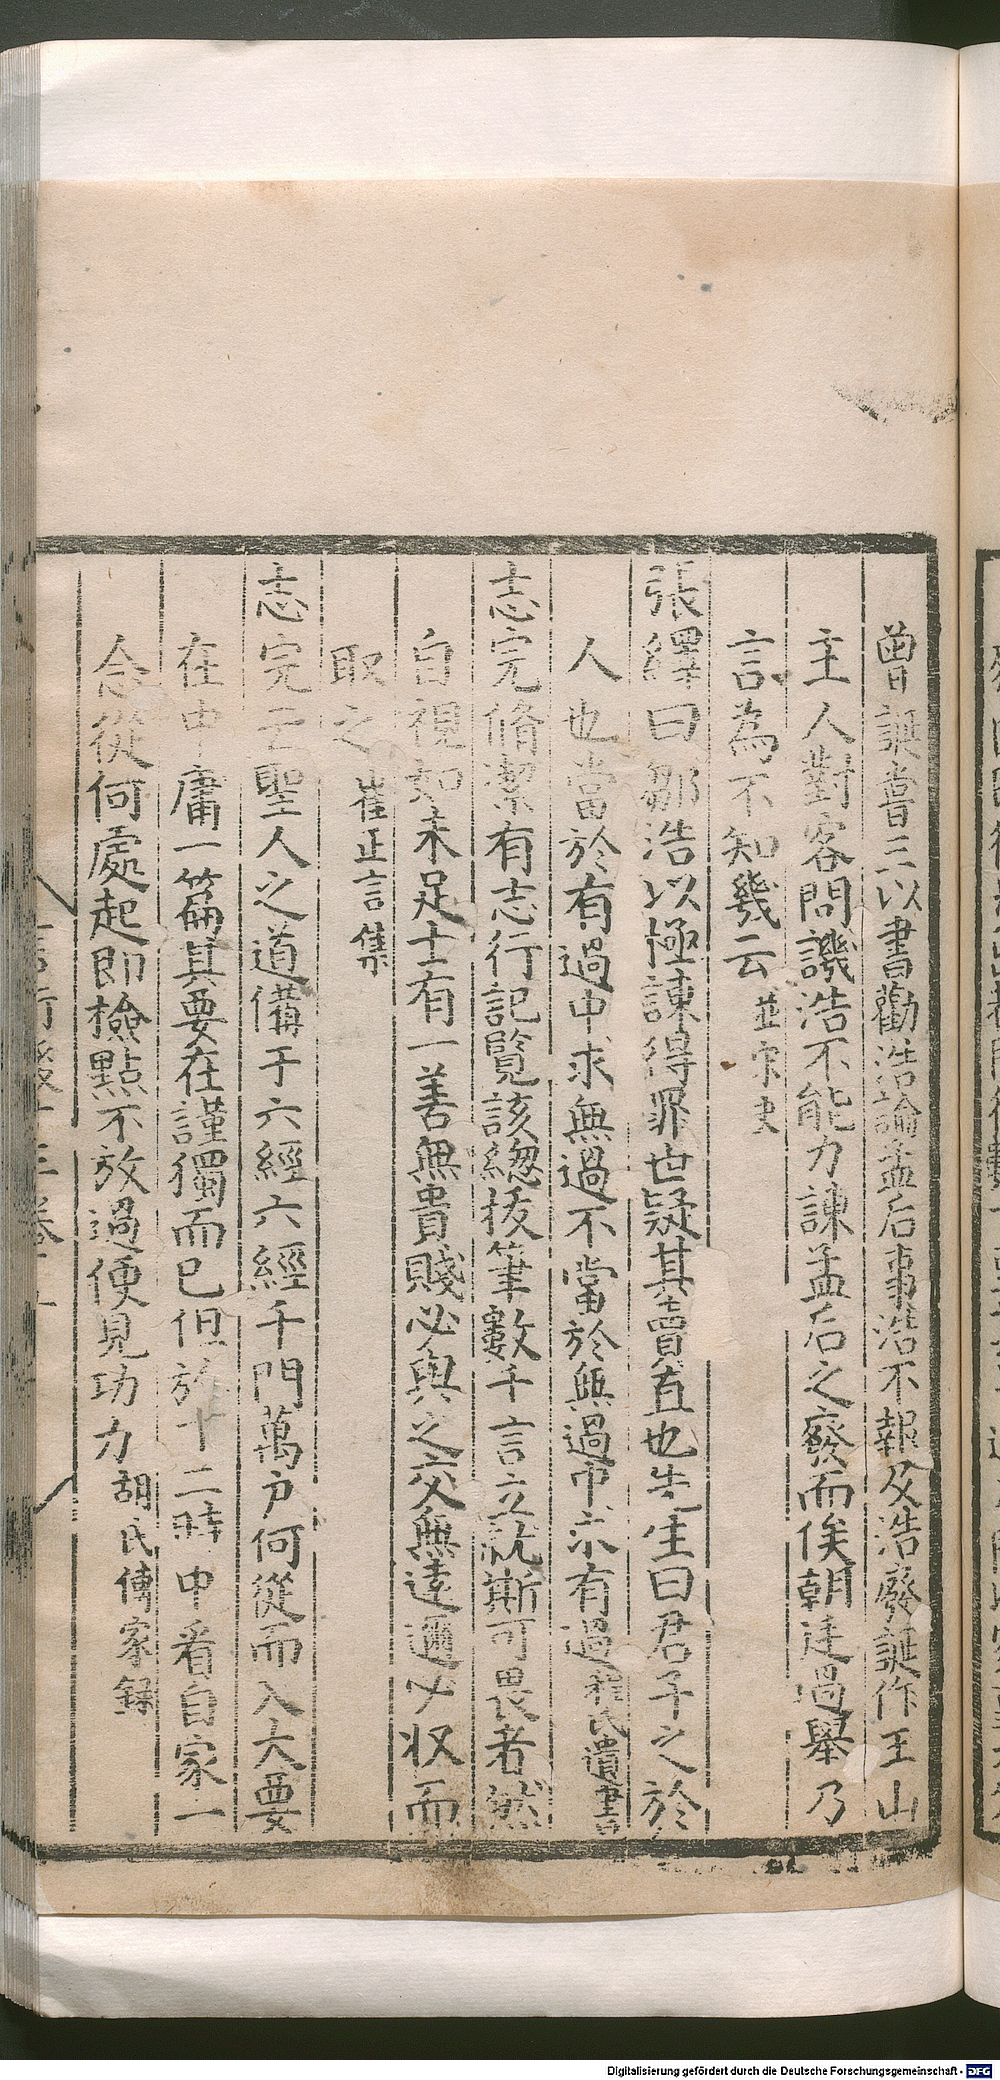 曾誕嘗三以書勸浩論孟后事浩不報及浩廢誕作王山
主人對客問譏浩不能力諫孟后之廢而俟朝廷過舉乃
言為不知幾云並宋史
張繹曰鄒浩以極諫得罪世疑其賣直也先生曰君子之於
人也當於有過中求無過不當於無過中求有過程氏遺書
志完脩潔有志行記覽該緫拔筆數千言立就斯可畏者然
自視如未足士有一善無貴賤必與之交無遠邇必収而
取之崔正言集
志完云聖人之道備于六經六經千門萬户何從而入大要
在中庸一篇其要在謹獨而已但於十二時中看自家一
念從何處起即檢點不放過便見功力胡氏傳家録
言行後十三卷
Digitalisierung gefördert durch die Deutsche Forschungsgemeinschaft - DFG